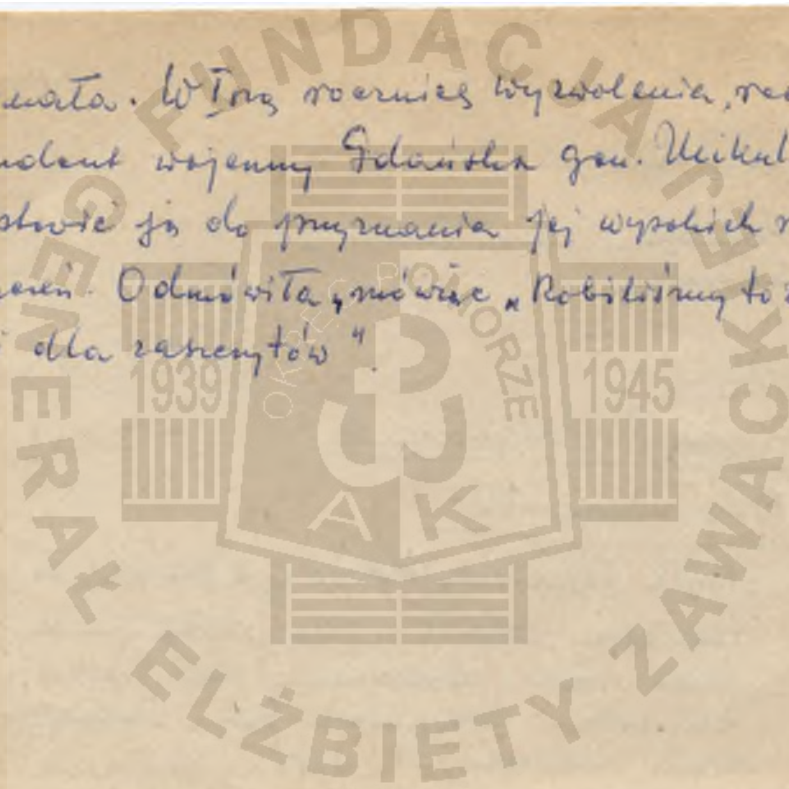 mała. W Iszą rocznicę wyzwolenia,
wojenny Gdańska gen. Mikul
ją do przyznania jej wysokich
Odmówiła, mówiąc „Robiliśmy to
dla zaszczytów".
FUNDACJA
GENERAŁ ELŻBIETY ZAWACKIEJ
OKRĘG POMORZE
1939
1945
AK